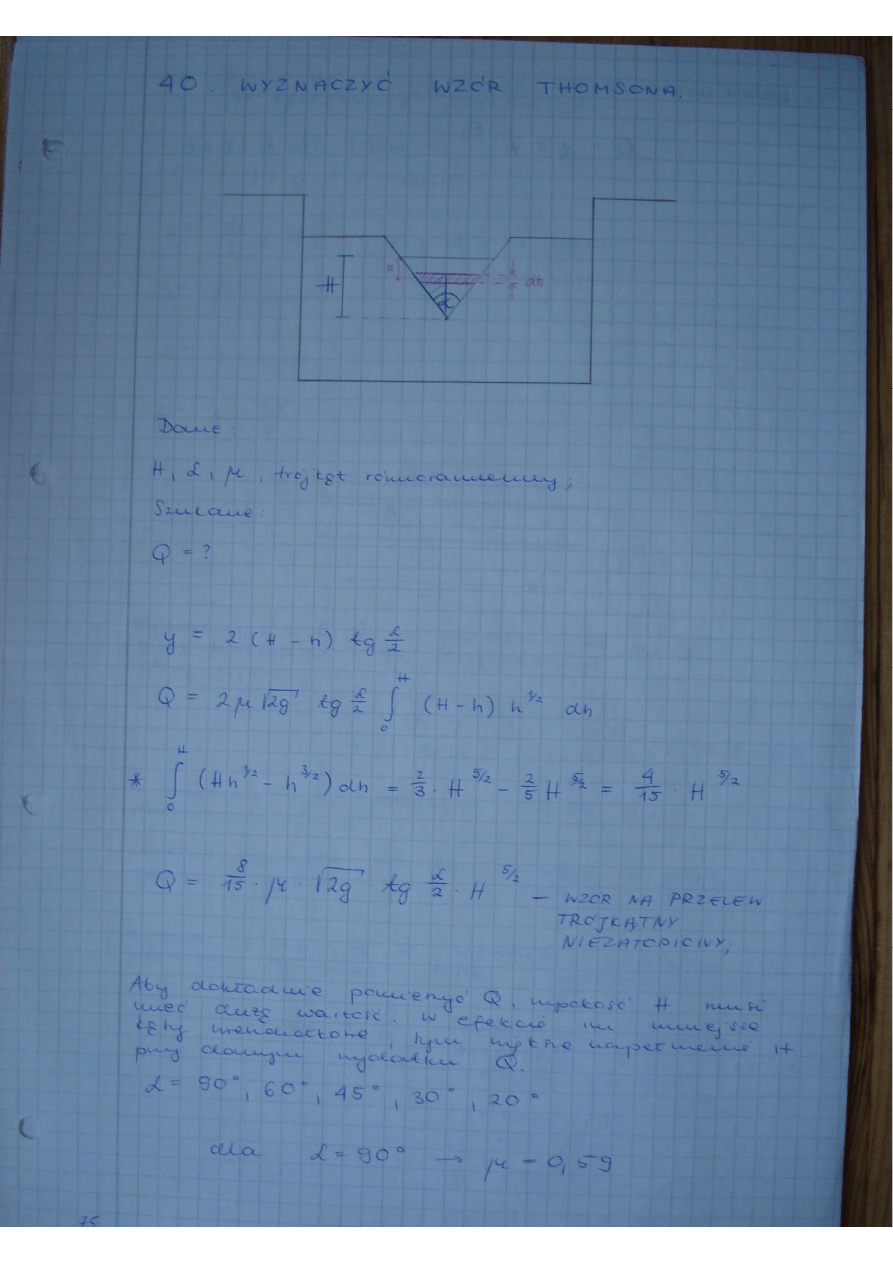 40. WYZNACZYĆ WZÓR THOMSONA.
H
h
dh
α
Dane:
H, α, μ, trójkąt równoramienny;
Szukane:
Q = ?
y = 2 (H - h) tg α/2
Q = 2μ√2g tg α/2 ∫₀ᴴ (H-h) h^1/2 dh
* ∫₀ᴴ (Hh^1/2 - h^3/2) dh = 2/3 · H^5/2 - 2/5 H^5/2 = 4/15 · H^5/2
Q = 8/15 · μ · √2g · tg α/2 · H^5/2 — WZÓR NA PRZELEW
TRÓJKĄTNY
NIEZATOPIONY;
Aby dokładnie pomierzyć Q, wysokość H musi
mieć dużą wartość. W efekcie im mniejsze
kąty , tym większe napełnienie H
przy danym wydatku Q.
α = 90°, 60°, 45°, 30°, 20°
dla α = 90° → μ = 0,59
75